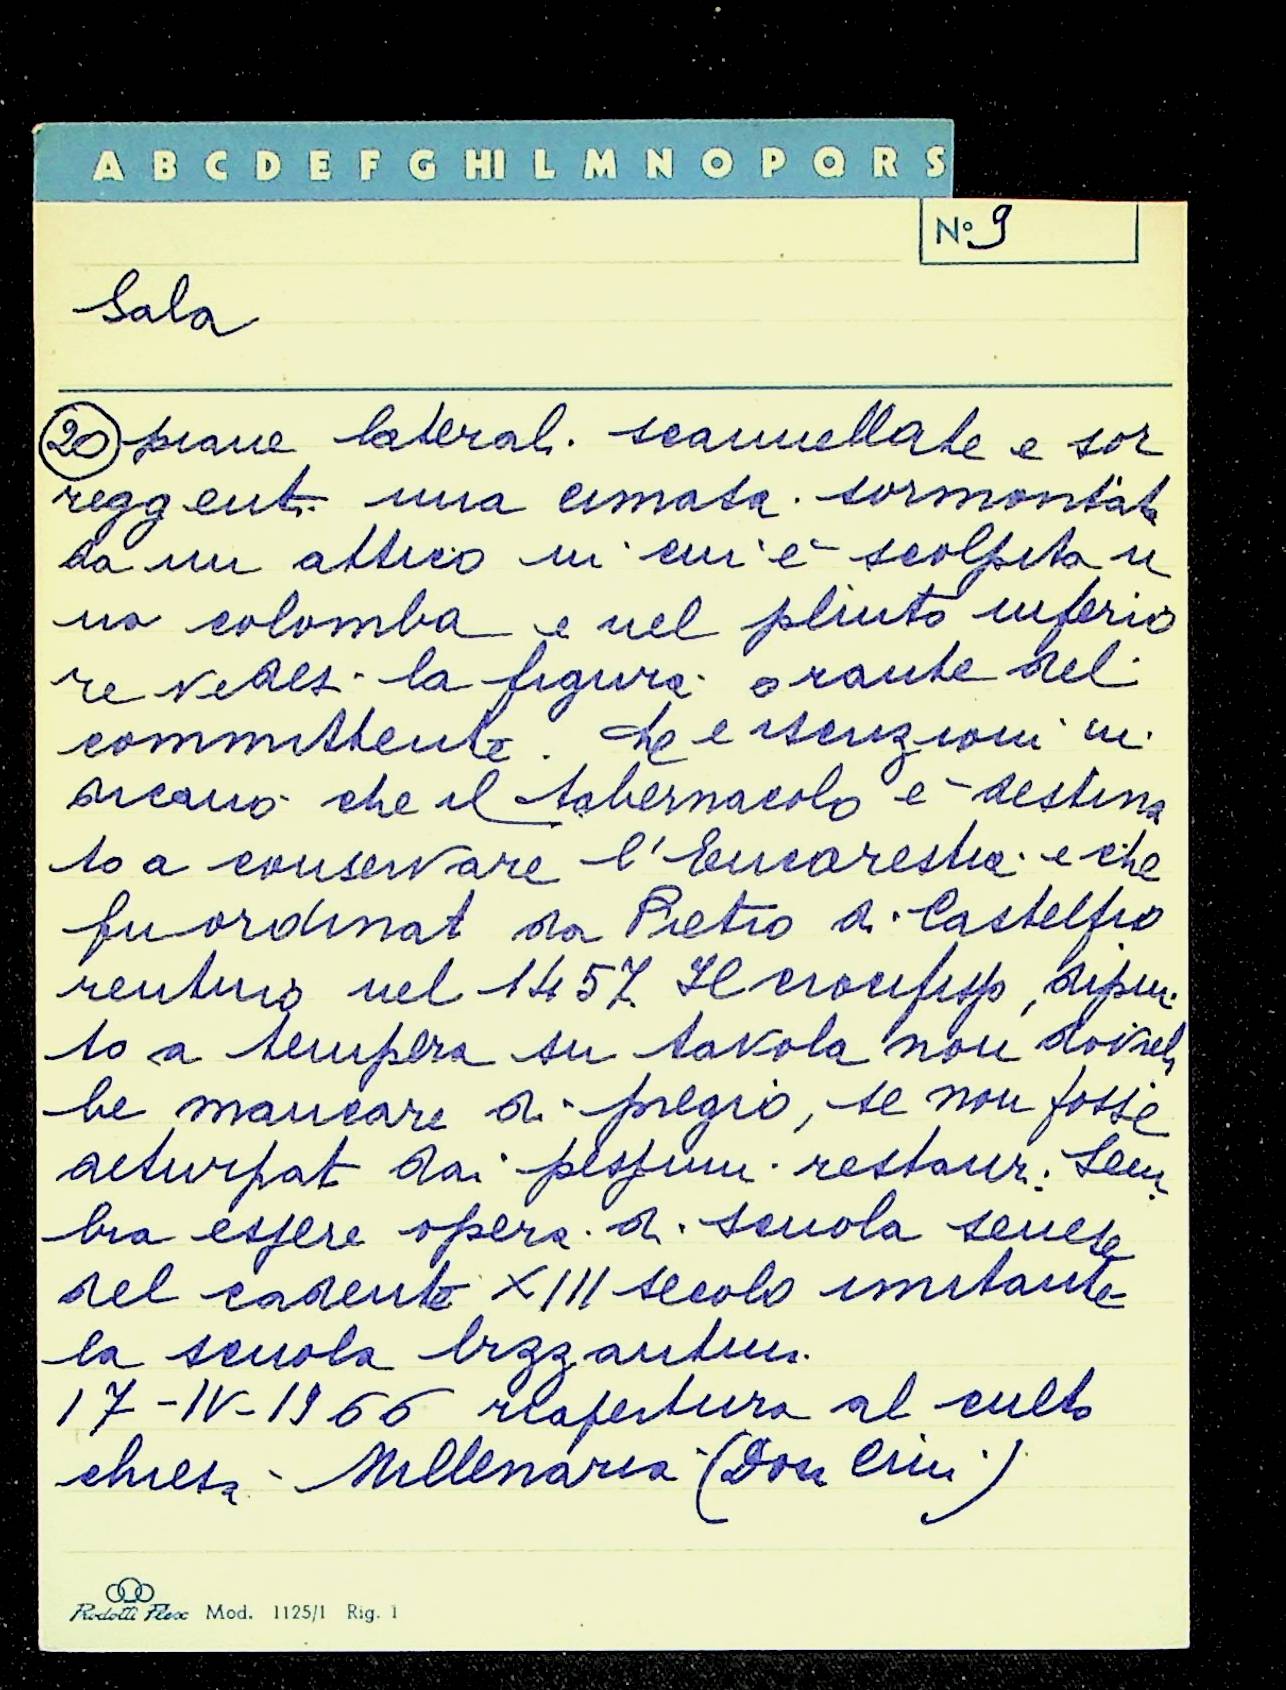 A B C D E F G HI L M N O P Q R S
N° 9
Sala
20 piane laterali scannellate e sor
reggenti una cimasa sormontata
da un attico in cui è scolpita u
na colomba e nel plinto inferio
re vedesi la figura orante del
committente. Le iscrizioni in
dicano che il tabernacolo è destina
to a conservare l'Eucarestia e che
fu ordinat da Pietro di Castelfio
rentino nel 1457. Il crocifisso, dipin
to a tempera su tavola non dovreb
be mancare di pregio, se non fosse
deturpat dai pessimi restauri. Sem
bra essere opera di scuola senese
del cadente XIII secolo imitante
la scuola bizzantina.
17-IV-1966 riapertura al culto
chiesa Millenaria (Don Cini)
Prodotti Flex Mod. 1125/1 Rig. 1